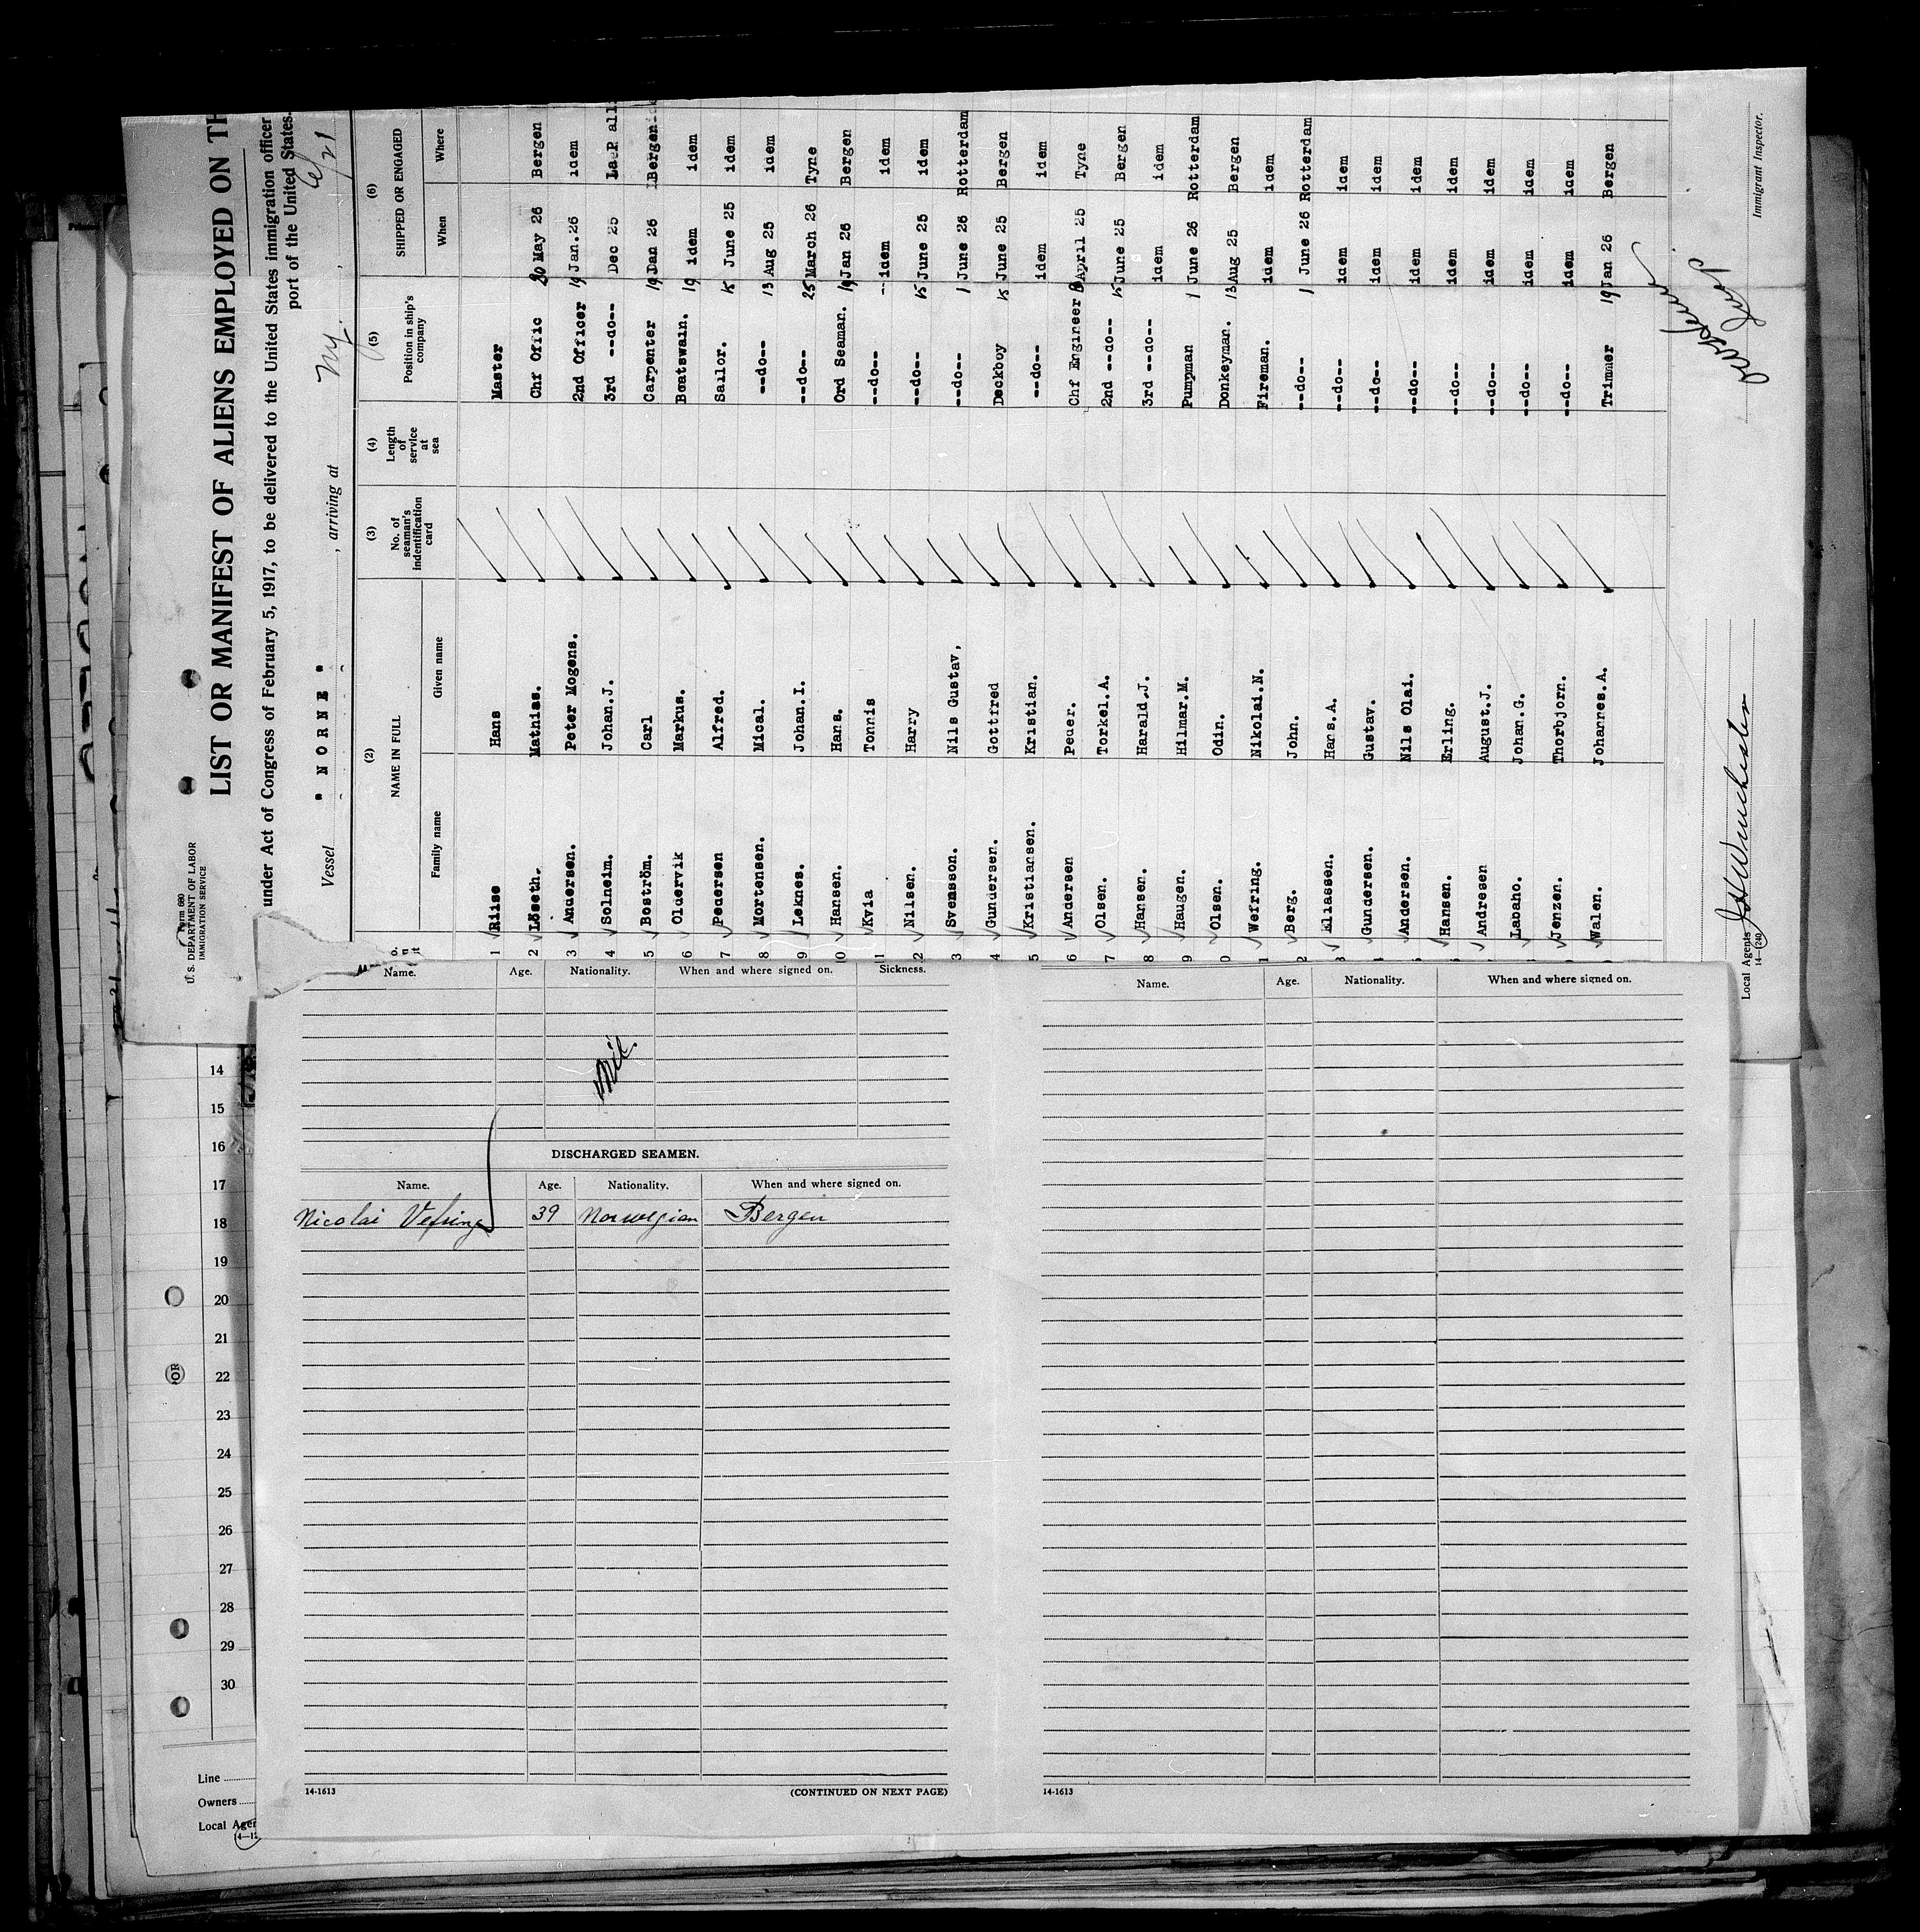 Form 680
U. S. DEPARTMENT OF LABOR
IMMIGRATION SERVICE
LIST OR MANIFEST OF ALIENS EMPLOYED ON TH
under Act of Congress of February 5, 1917, to be delivered to the United States immigration officer
port of the United States.
Vessel " NORNE " , arriving at Ny. , 6/21
(2) NAME IN FULL (3) No. of seaman's indentification card (4) Length of service at sea (5) Position in ship's company (6) SHIPPED OR ENGAGED
Family name Given name When Where
1 Riise Hans Master
2 Löseth. Mathias. Chf Offic 20 May 26 Bergen
3 Andersen. Peter Mogens. 2nd Officer 19 Jan.26 idem
4 Solheim. Johan.J. 3rd --do-- Dec 25
5 Boström. Carl Carpenter 19 Jan 26 Bergen
6 Oldervik Markus. Boatswain. 19 idem idem
7 Pedersen Alfred. Sailor. 15 June 25 idem
8 Mortensen. Mical. --do-- 13 Aug 25 idem
9 Leknes. Johan.I. --do-- 25 March 26 Tyne
0 Hansen. Hans. Ord Seaman. 19 Jan 26 Bergen
1 Kvia Tonnis --do-- --idem idem
2 Nilsen. Harry --do-- 15 June 25 idem
3 Svensson. Nils Gustav, --do-- 1 June 26 Rotterdam
4 Gundersen. Gottfred Deckboy 15 June 25 Bergen
5 Kristiansen. Kristian. --do-- idem idem
6 Andersen Peder. Chf Engineer April 25 Tyne
7 Olsen. Torkel.A. 2nd --do-- 15 June 25 Bergen
8 Hansen. Harald.J. 3rd --do-- idem idem
9 Haugen. Hilmar.M. Pumpman 1 June 26 Rotterdam
0 Olsen. Odin. Donkeyman. 13 Aug 25 Bergen
1 Wefring. Nikolai.N. Fireman. idem idem
2 Berg. John. --do-- 1 June 26 Rotterdam
3 Eliassen. Hans.A. --do-- idem idem
Gundersen. Gustav. --do-- idem idem
Andersen. Nils Olai. --do-- idem idem
Hansen. Erling. --do-- idem idem
Andresen August.J. --do-- idem idem
Labaho. Johan.G. --do-- idem idem
Jenzen. Thorbjorn. --do-- idem idem
Walen. Johannes.A. Trimmer 19 Jan 26 Bergen
Local Agents J H Winchester
14—1240
Immigrant Inspector.
Name. Age. Nationality. When and where signed on. Sickness.
Nil.
DISCHARGED SEAMEN.
Name. Age. Nationality. When and where signed on.
Nicolai Vefring 39 Norwegian Bergen
14-1613 (CONTINUED ON NEXT PAGE)
Name. Age. Nationality. When and where signed on.
14-1613
14
15
16
17
18
19
20
21
22
23
24
25
26
27
28
29
30
Line
Owners
Local Agen